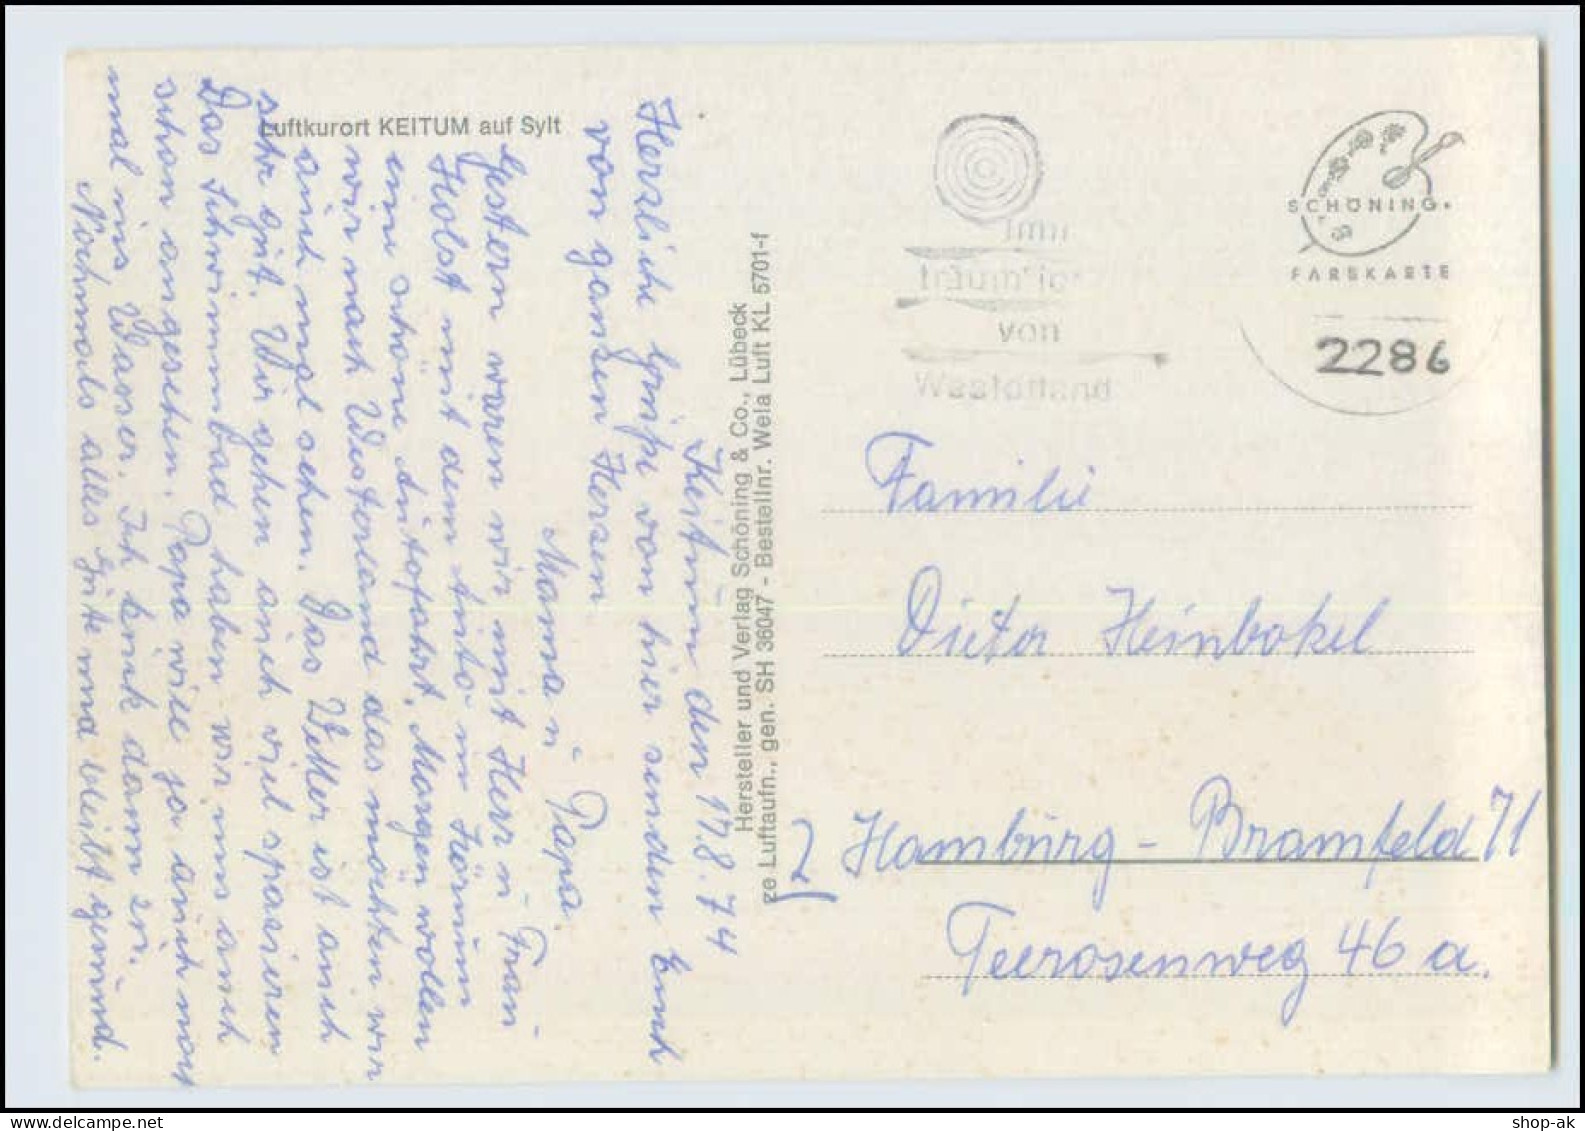 Luftkurort KEITUM auf Sylt
Keitum den 17.8.74
Herzliche Grüße von hier senden Euch
von ganzen Herzen
Mama ü Papa.
Gestern waren wir mit Herr ü Frau
Holst mit dem Auto in Hörnum
eine schöne Autofahrt. Morgen wollen
wir nach Westerland das möchten wir
auch mal sehen. Das Wetter ist auch
sehr gut. Wir gehen auch viel spazieren
Das Schwimmbad haben wir uns auch
schon angesehen. Papa will ja auch
mal ins Wasser. Ich kuck dann zu.
Nochmals alles Gute und bleibt gesund.
Hersteller und Verlag Schöning & Co., Lübeck
ze Luftaufn., gen. SH 36047 - Bestellnr. Wela Luft KL 5701-f
träum'
von
SCHÖNING
FARBKARTE
2286
Familie
Dieter Heinbokel
2 Hamburg - Bramfeld 71
Teerosenweg 46 a.
shop-ak